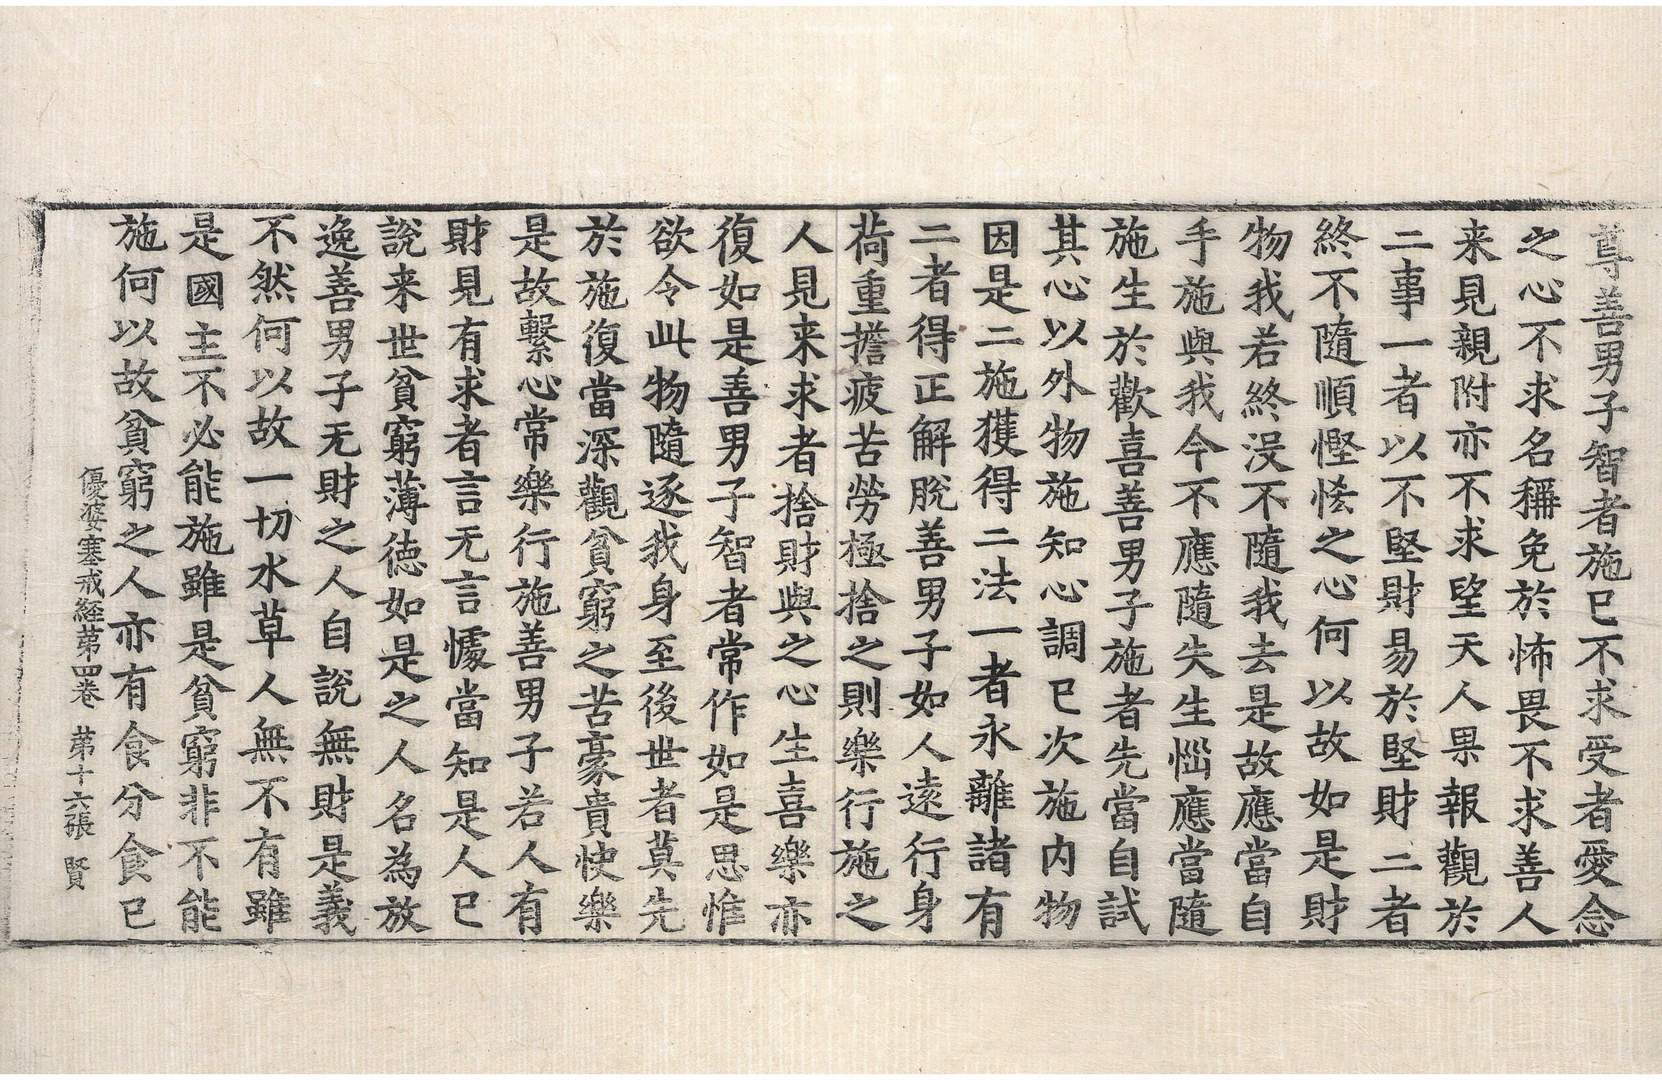 尊善男子智者施已不求受者愛念
之心不求名稱免於怖畏不求善人
来見親附亦不求望天人果報觀於
二事一者以不堅財易於堅財二者
終不隨順慳悋之心何以故如是財
物我若終没不隨我去是故應當自
手施與我今不應隨失生惱應當隨
施生於歡喜善男子施者先當自試
其心以外物施知心調已次施内物
因是二施獲得二法一者永離諸有
二者得正解脫善男子如人遠行身
荷重擔疲苦勞極捨之則樂行施之
人見来求者捨財與之心生喜樂亦
復如是善男子智者常作如是思惟
欲令此物隨逐我身至後世者莫先
於施復當深觀貧窮之苦豪貴快樂
是故繫心常樂行施善男子若人有
財見有求者言无言懅當知是人已
說来世貧窮薄德如是之人名為放
逸善男子无財之人自說無財是義
不然何以故一切水草人無不有雖
是國主不必能施雖是貧窮非不能
施何以故貧窮之人亦有食分食已
優婆塞戒経苐四卷　苐十六張　賢